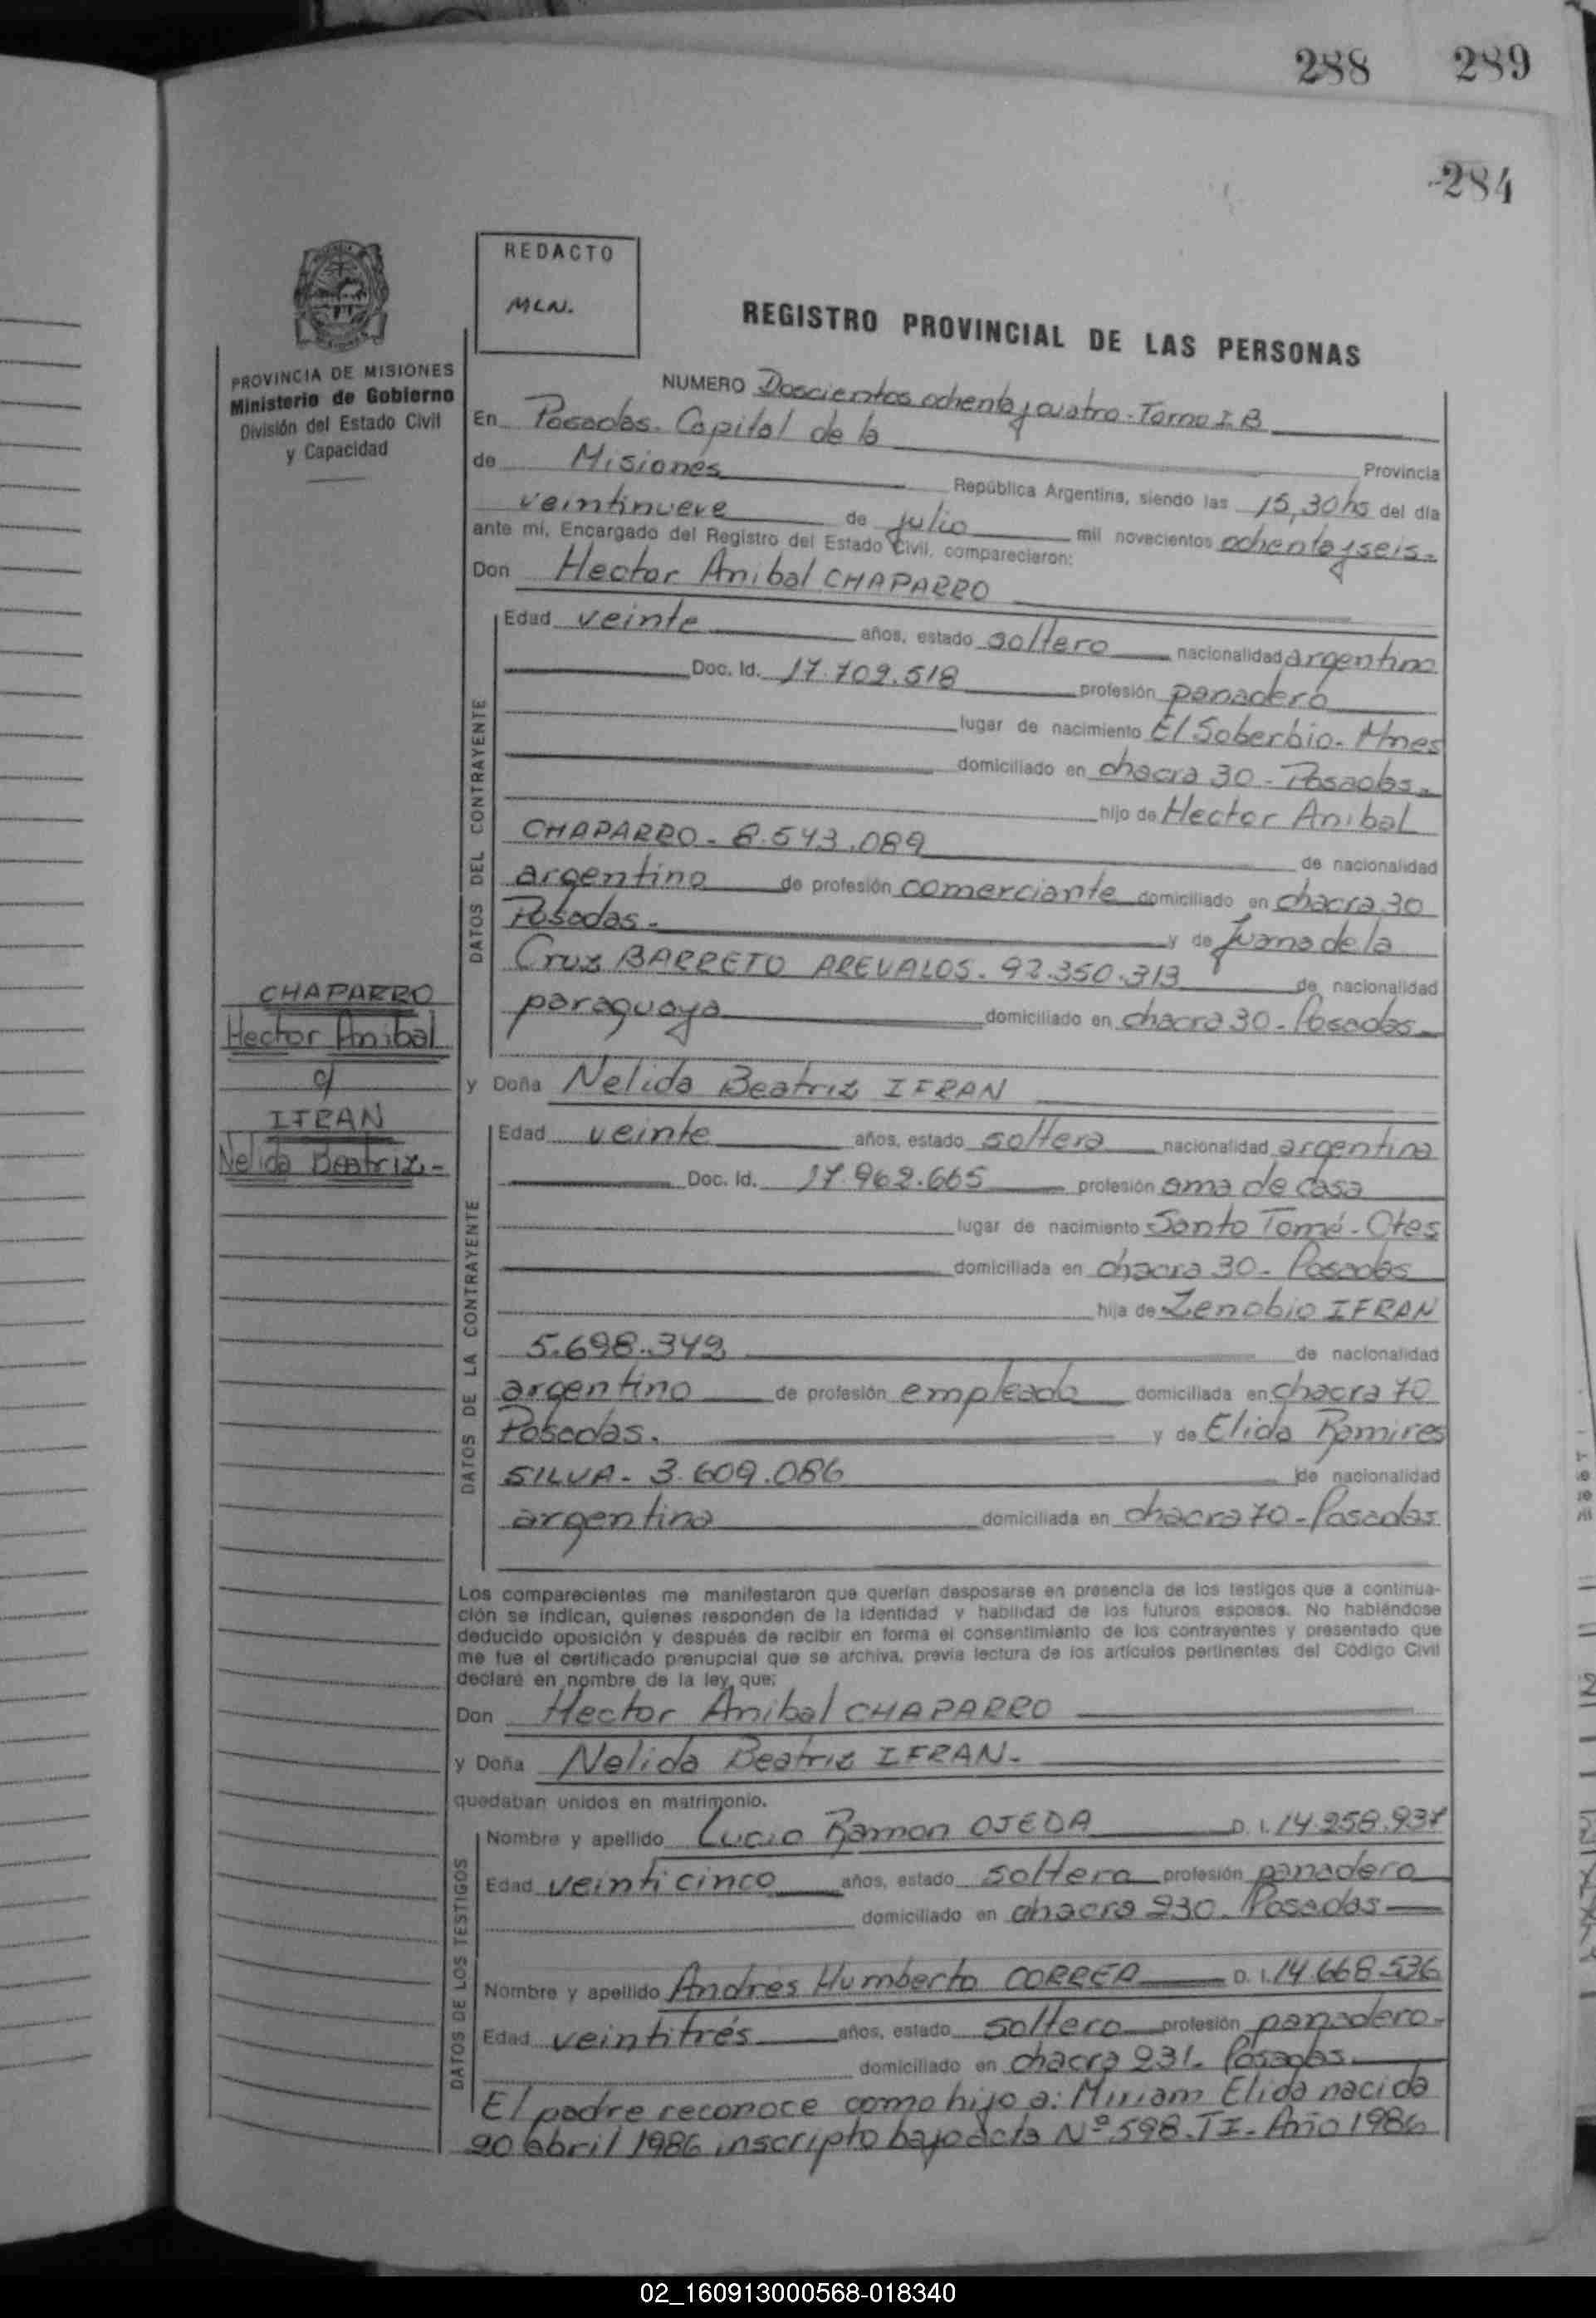 288 289
284
REDACTO
MLN.
REGISTRO PROVINCIAL DE LAS PERSONAS
PROVINCIA DE MISIONES
Ministerio de Gobierno
División del Estado Civil
y Capacidad
NUMERO Doscientos ochenta y cuatro - Tomo I. B
En Posadas. Capital de la Provincia
de Misiones República Argentina, siendo las 15,30 hs del día
veintinueve de julio mil novecientos ochenta y seis.
ante mí, Encargado del Registro del Estado Civil, comparecieron:
Don Hector Anibal CHAPARRO
DATOS DEL CONTRAYENTE
Edad veinte años, estado soltero nacionalidad argentino
Doc. Id. 17.709.518 profesión panadero
lugar de nacimiento El Soberbio. Mnes
domiciliado en chacra 30 - Posadas.
hijo de Hector Anibal
CHAPARRO - 8.543.089 de nacionalidad
argentino de profesión comerciante domiciliado en chacra 30
Posadas. y de Juana de la
Cruz BARRETO AREVALOS. 92.350.313 de nacionalidad
paraguaya domiciliado en chacra 30 - Posadas
CHAPARRO
Hector Anibal
c/
IFRAN
Nelida Beatriz.-
y Doña Nelida Beatriz IFRAN
DATOS DE LA CONTRAYENTE
Edad veinte años, estado soltera nacionalidad argentina
Doc. Id. 17.962.665 profesión ama de casa
lugar de nacimiento Santo Tomé - Ctes
domiciliada en chacra 30 - Posadas
hija de Zenobio IFRAN
5.698.349 de nacionalidad
argentino de profesión empleado domiciliada en chacra 70
Posadas. y de Elida Ramires
SILVA - 3.609.086 de nacionalidad
argentina domiciliada en chacra 70 - Posadas
Los comparecientes me manifestaron que querían desposarse en presencia de los testigos que a continua-
ción se indican, quienes responden de la identidad y habilidad de los futuros esposos. No habiéndose
deducido oposición y después de recibir en forma el consentimiento de los contrayentes y presentado que
me fue el certificado prenupcial que se archiva, previa lectura de los artículos pertinentes del Código Civil
declaré en nombre de la ley, que:
Don Hector Anibal CHAPARRO
y Doña Nelida Beatriz IFRAN-
quedaban unidos en matrimonio.
DATOS DE LOS TESTIGOS
Nombre y apellido Lucio Ramon OJEDA D. I. 14.258.937
Edad veinticinco años, estado soltero profesión panadero
domiciliado en chacra 230 - Posadas
Nombre y apellido Andres Humberto CORREA D. I. 14.668.536
Edad veintitrés años, estado soltero profesión panadero.
domiciliado en chacra 231. Posadas.
El padre reconoce como hijo a: Miriam Elida nacida
20 abril 1986 inscripto bajo acta Nº 598. T I - Año 1986
02_160913000568-018340